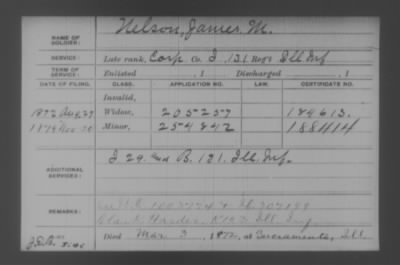 NAME OF SOLDIER: Nelson, James M.
SERVICE: Late rank, Corp Co. I, 131 Reg't Ill. Inf
TERM OF SERVICE: Enlisted , 1 Discharged , 1
DATE OF FILING. CLASS. APPLICATION NO. LAW. CERTIFICATE NO.
Invalid,
1872 Aug 27 Widow, 205257 184613.
1879 Nov 20 Minor, 254842 188414
ADDITIONAL SERVICES: I 29. and B. 131. Ill. Inf.
REMARKS:
Ill. Inf.
Died Mar 3, 1872, at Sacramento, Ill.